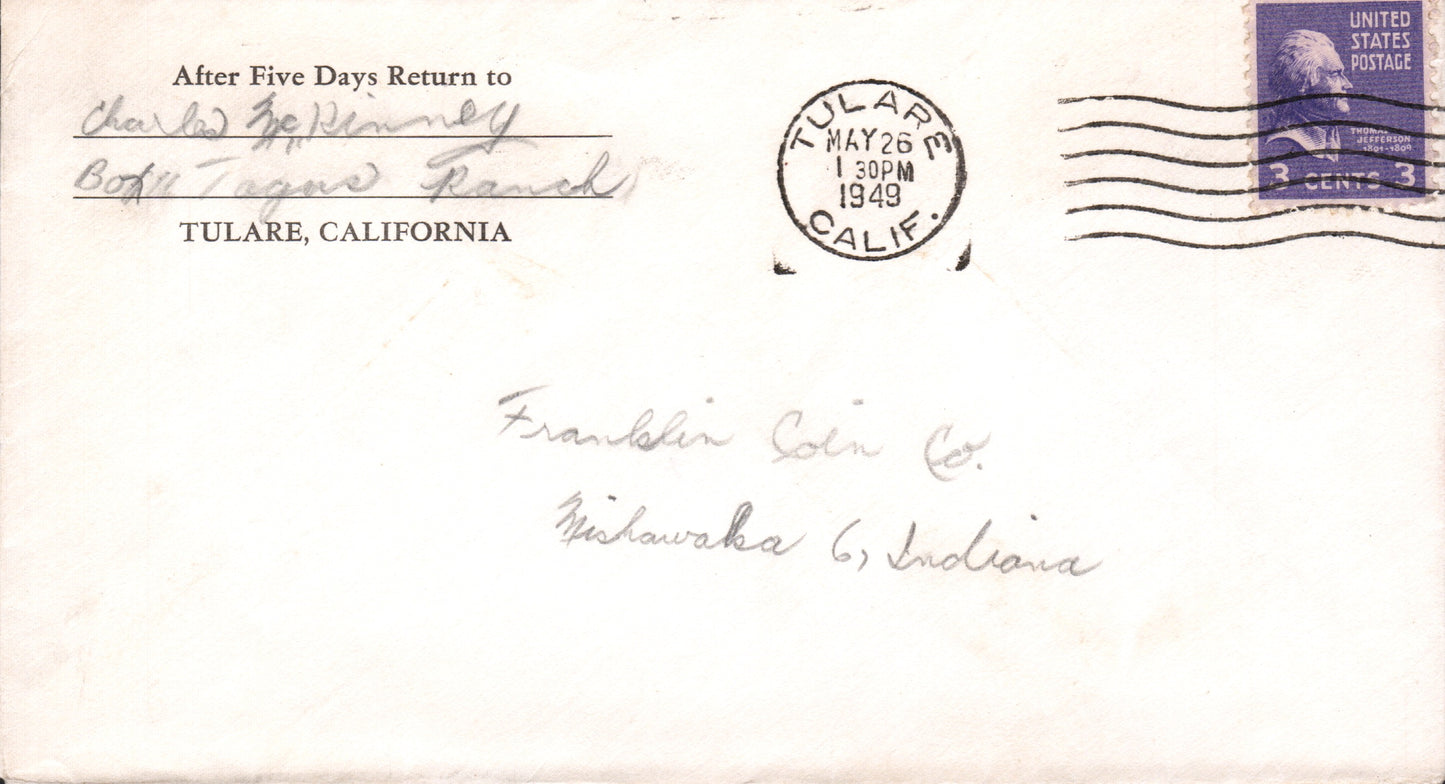 After Five Days Return to
Charles McKinney
Box 11 Tagus Ranch
TULARE, CALIFORNIA
TULARE
MAY 26
1 30 PM
1949
CALIF.
UNITED
STATES
POSTAGE
THOMAS
JEFFERSON
1801-1809
3 CENTS 3
Franklin Coin Co.
Mishawaka 6, Indiana